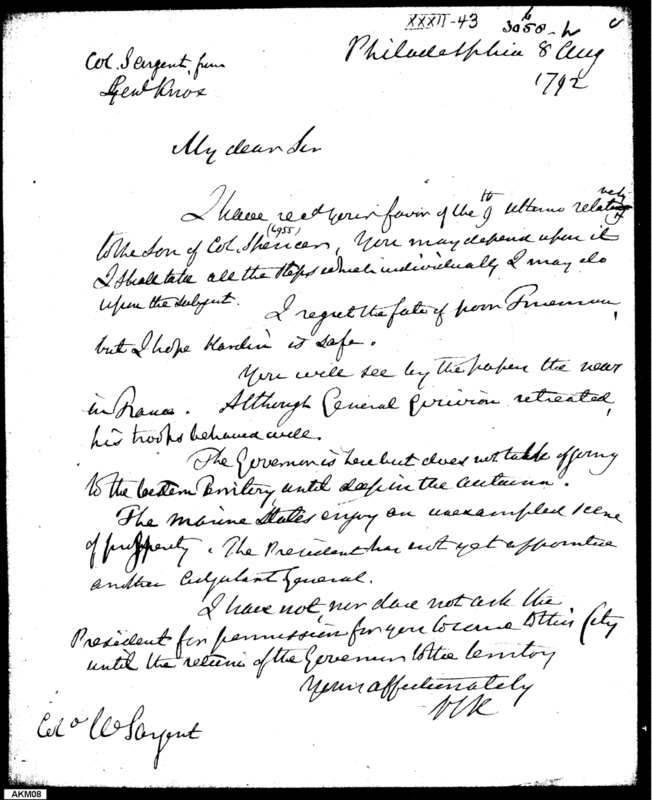 XXXII-43
Philadelphia 8 Aug
1792
Col. Sargent, from
Genl Knox
My dear Sir
I have recd your favor of the 9th ultimo relatively
to the Son of Col. Spencer, (1955) You may depend upon it
I shall take all the steps which individually I may do
upon the subject.
I regret the fate of poor Trueman,
but I hope Hardin is safe.
You will see by the papers the near
in France. Although General retreated,
his troops behaved well.
The Governor is here but does not talk of going
to the Western Territory, until deep in the autumn.
The marine States enjoy an unexampled scene
of prosperity. The President has not yet appointed
another Adjutant General.
I have not, nor dare not ask the
President for permission for you to come to this City
until the return of the Governor to the territory
Yours affectionately
HK
Colo W Sargent
AKM08